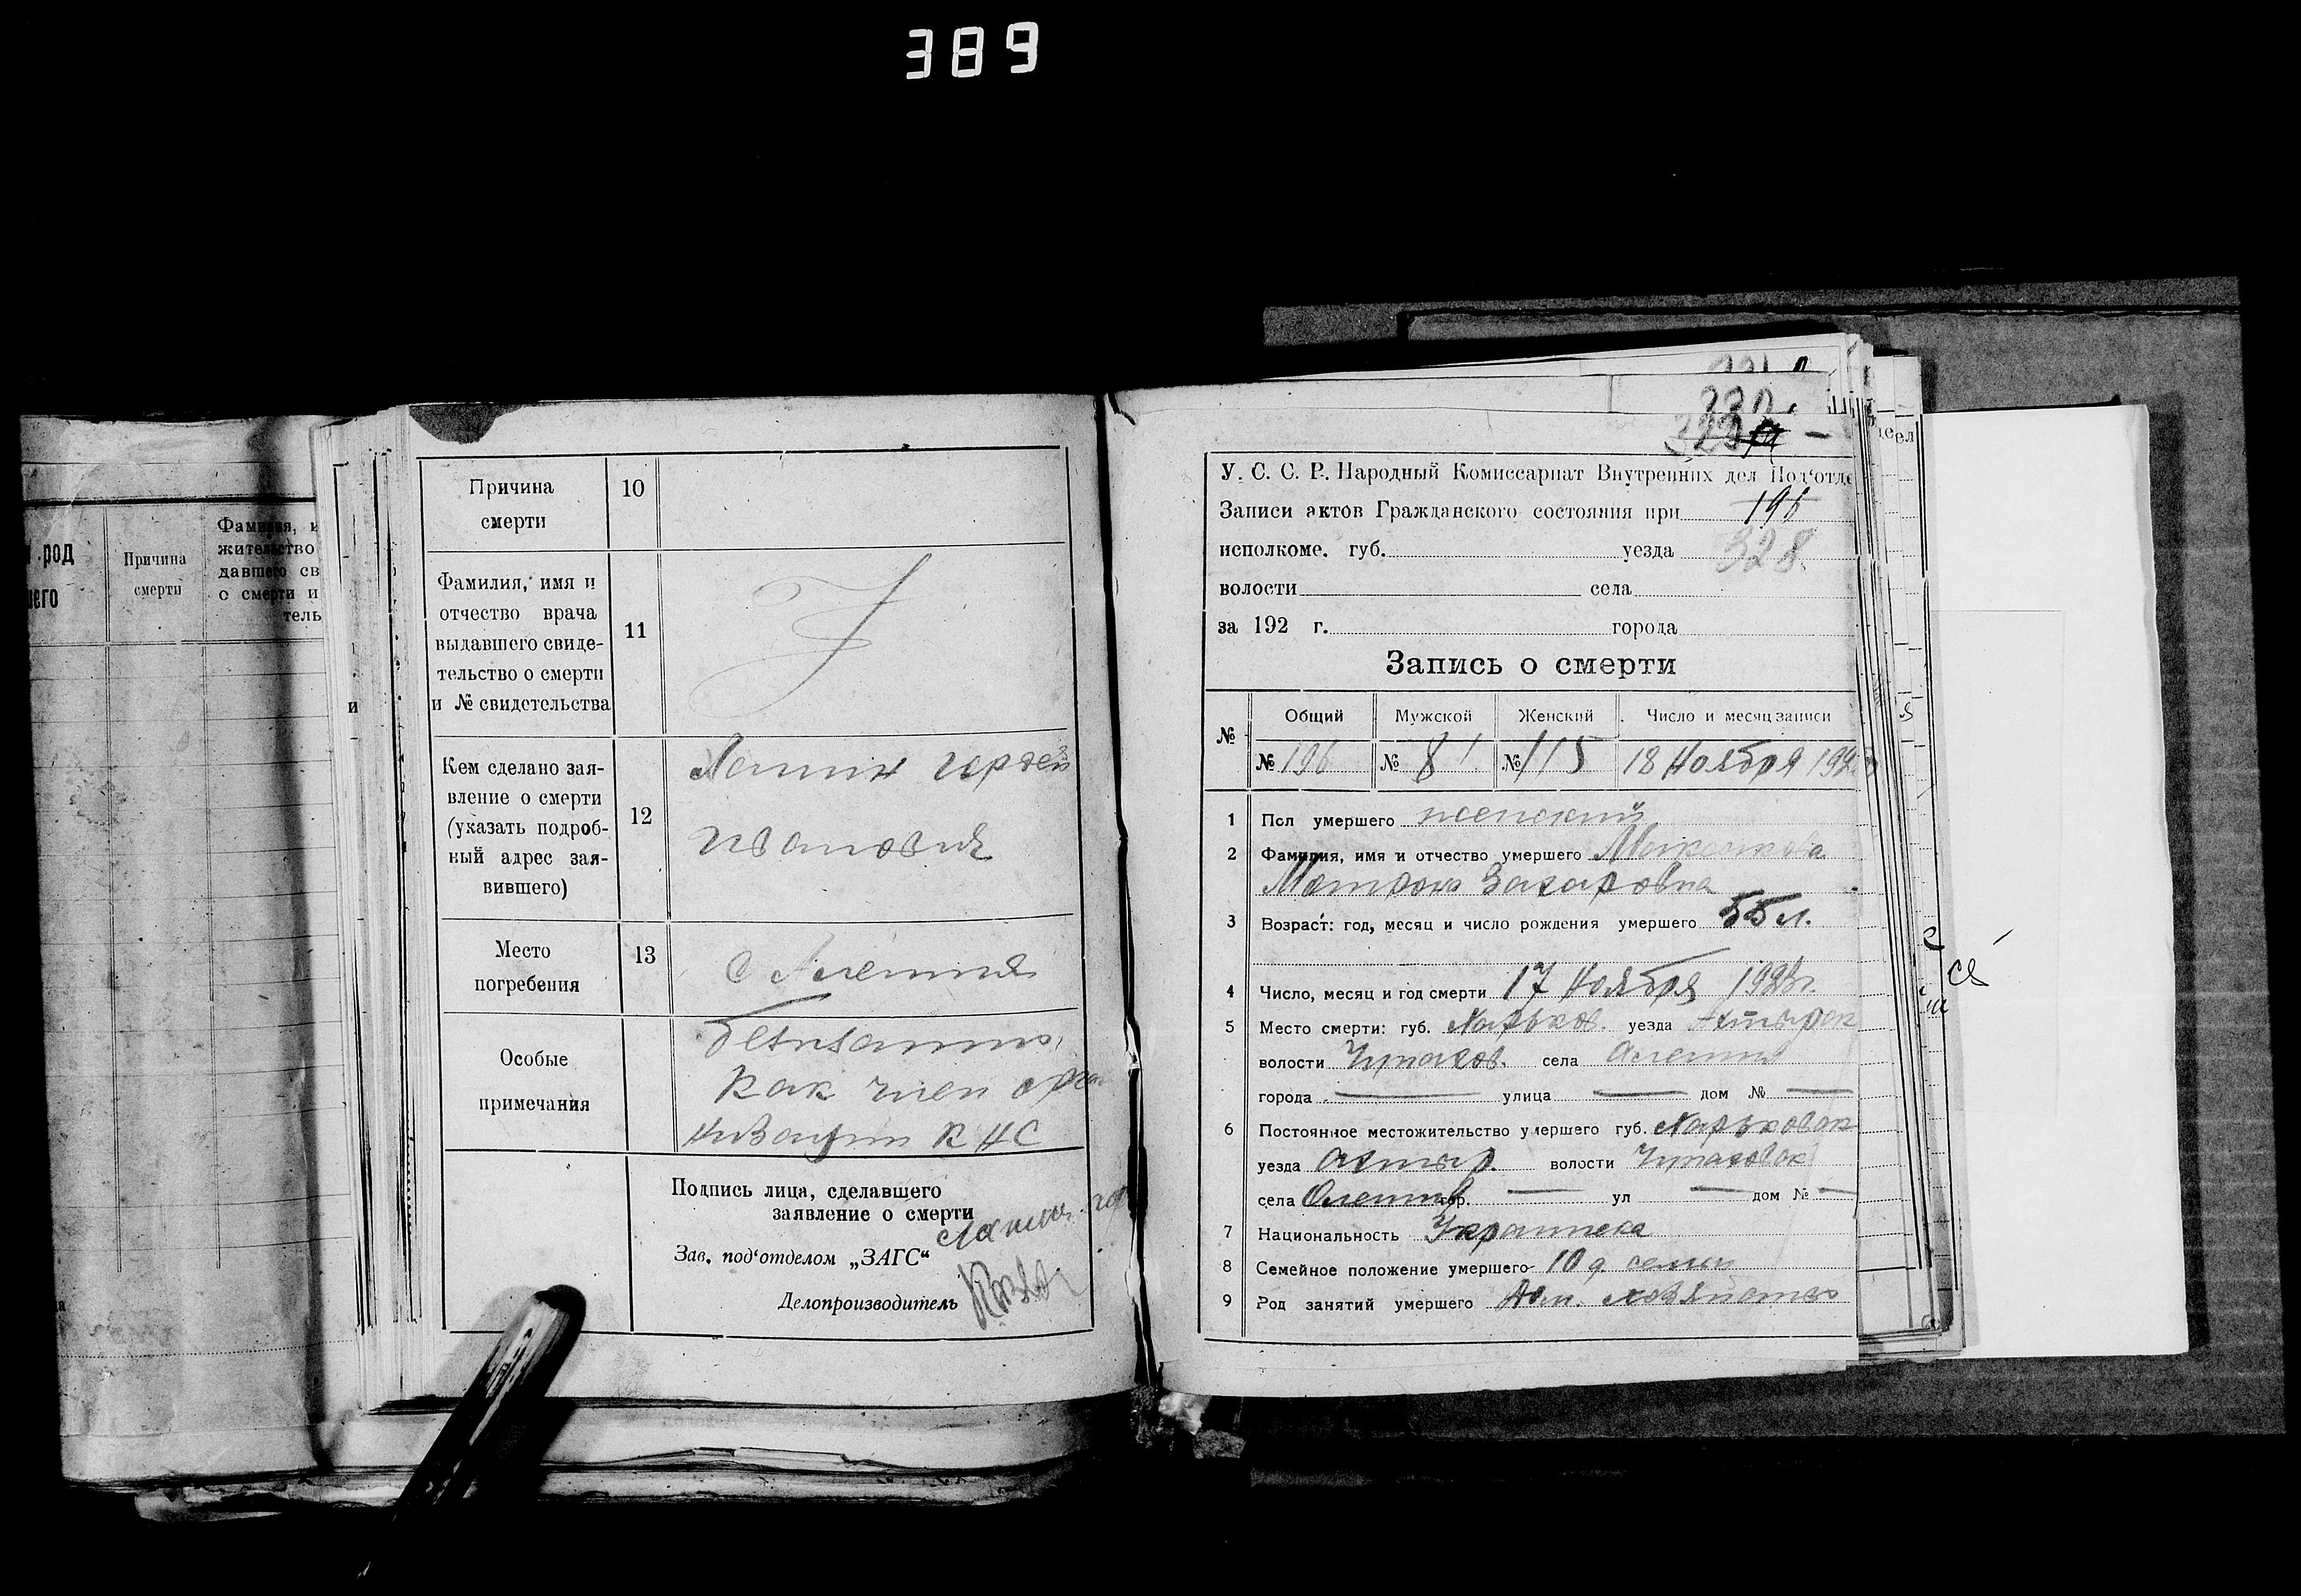 389
род
его
Причина
смерти
Фамилия, и
жительство
давшего св
о смерти и
тель
и
Причина
смерти
10
Фамилия, имя и
отчество врача
выдавшего свиде-
тельство о смерти
и № свидетельства
11
Кем сделано зая-
вление о смерти
(указать подроб-
ный адрес зая-
вившего)
12
Иванович
Место
погребения
13
Особые
примечания
Безплатно
как член орга
низации КНС
Подпись лица, сделавшего
заявление о смерти
Зав. под‘отделом „ЗАГС“
Делопроизводитель
330
У. С. С. Р. Народный Комиссариат Внутренних дел Под‘отде
Записи актов Гражданского состояния при 196
исполкоме. губ. уезда 328
волости села
за 192 г. города
Запись о смерти
№ Общий Мужской Женский Число и месяц записи
№ 196 № 81 № 115 18 Ноября 192
1 Пол умершего женский
2 Фамилия, имя и отчество умершего
Матрона Захаровна
3 Возраст: год, месяц и число рождения умершего 55 л.
4 Число, месяц и год смерти 17 Ноября
5 Место смерти: губ. Харьков. уезда Ахтырск
волости Чупахов. села
города — улица — дом № —
6 Постоянное местожительство умершего губ. Харьковск
уезда Ахтыр. волости Чупаховск
села гор. — ул — дом № —
7 Национальность Украинска
8 Семейное положение умершего 10 д. семьи
9 Род занятий умершего Дом. хозяйство